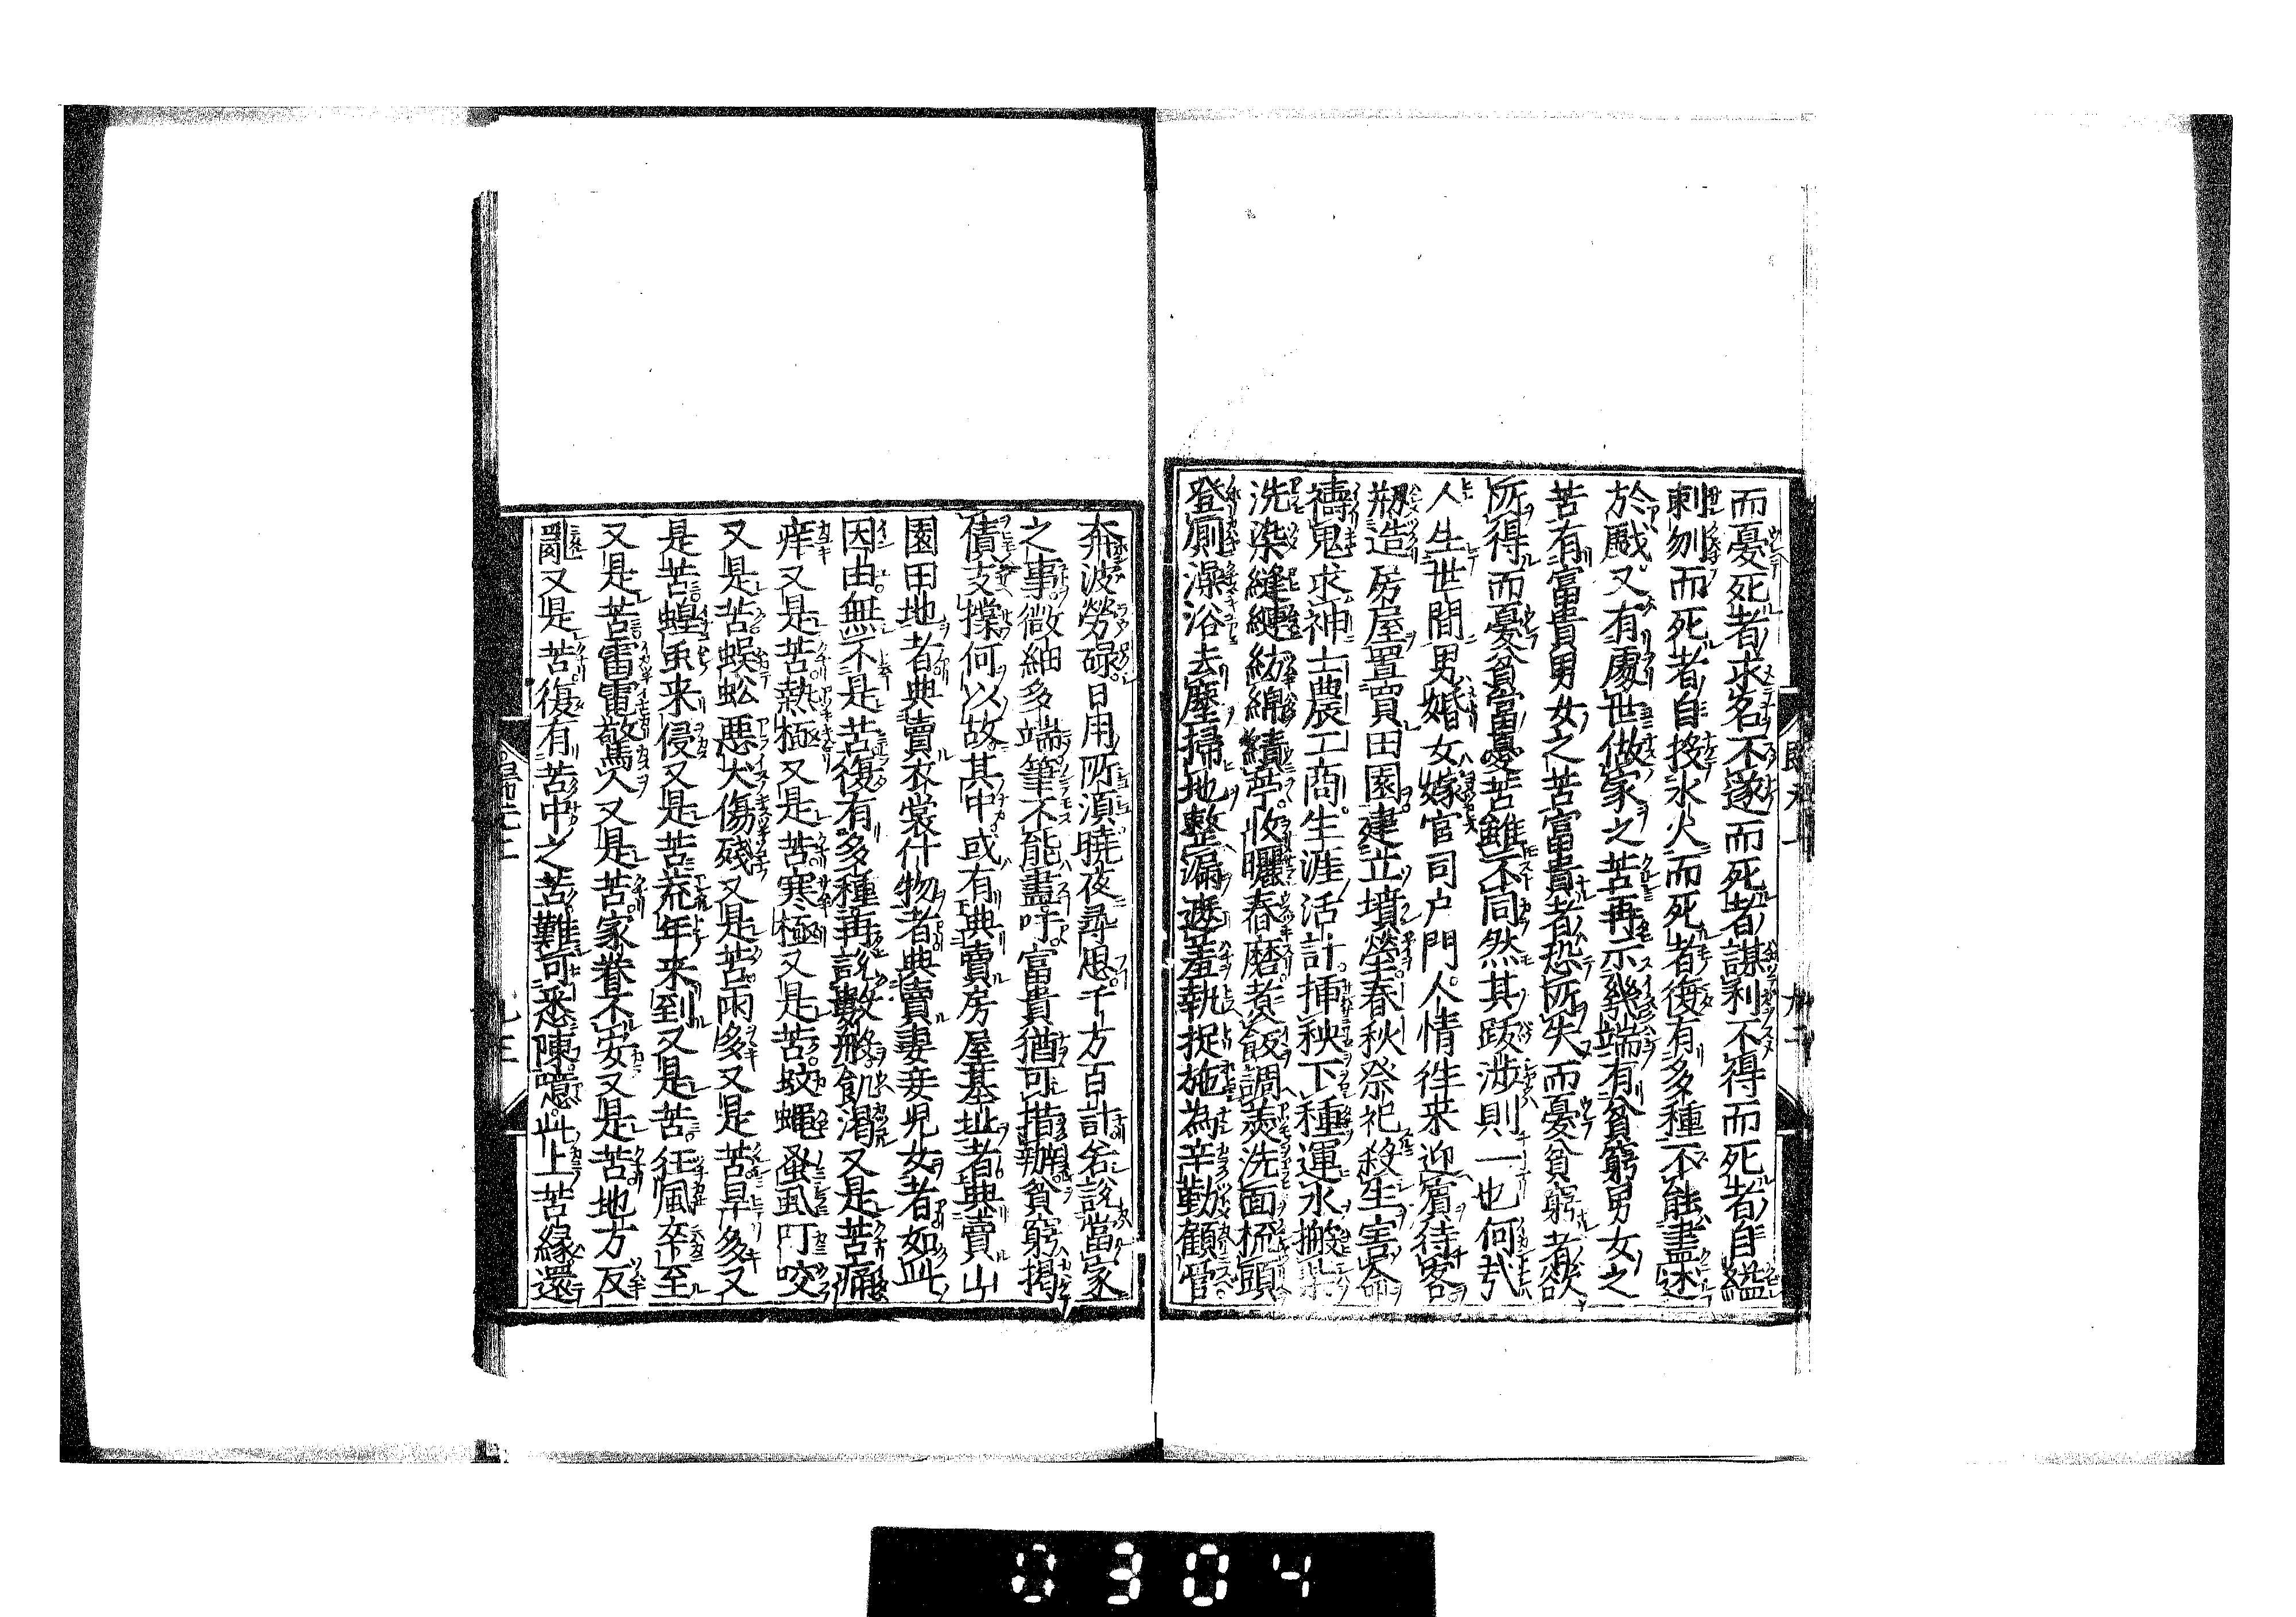 而憂死者求名不遂而死者謀利不得而死者自縊
刺刎而死者自投水火而死者復有多種不能盡述
於戲又有處世做家之苦再示幾端有貧窮男女之
苦有富貴男女之苦富貴者恐所失而憂貧窮者欲
所得而憂貧富憂苦雖不同然其跋涉則一也何哉
人生世間男婚女嫁官司户門人情徃来迎賔待客
剏造房屋置買田園建立墳塋春秋祭祀殺生害命
禱鬼求神士農工商生涯活計揷秧下種運水搬柴
洗染縫纏紡綿績苧收曬舂磨煑飯調羮洗面梳頭
登厠澡浴去塵掃地整漏遮羞執捉施為辛勤顧管
奔波勞碌日用所湏曉夜尋思千方百計若說當家
之事微細多端筆不能盡吁富貴猶可措辦貧窮揭
債支撐何以故其中或有典賣房屋基址者典賣山
園田地者典賣衣裳什物者典賣妻妾児女者如此
因由無不是苦復有多種再說數般飢渴又是苦痛
痒又是苦熱極又是苦寒極又是苦蚊蠅蚤虱叮咬
又是苦蜈蚣悪犬傷殘又是苦雨多又是苦旱多又
是苦蝗虫来侵又是苦荒年来到又是苦狂風卒至
又是苦雷電驚人又是苦家眷不安又是苦地方反
亂又是苦復有苦中之苦難可悉陳噫此上苦緣還
0304